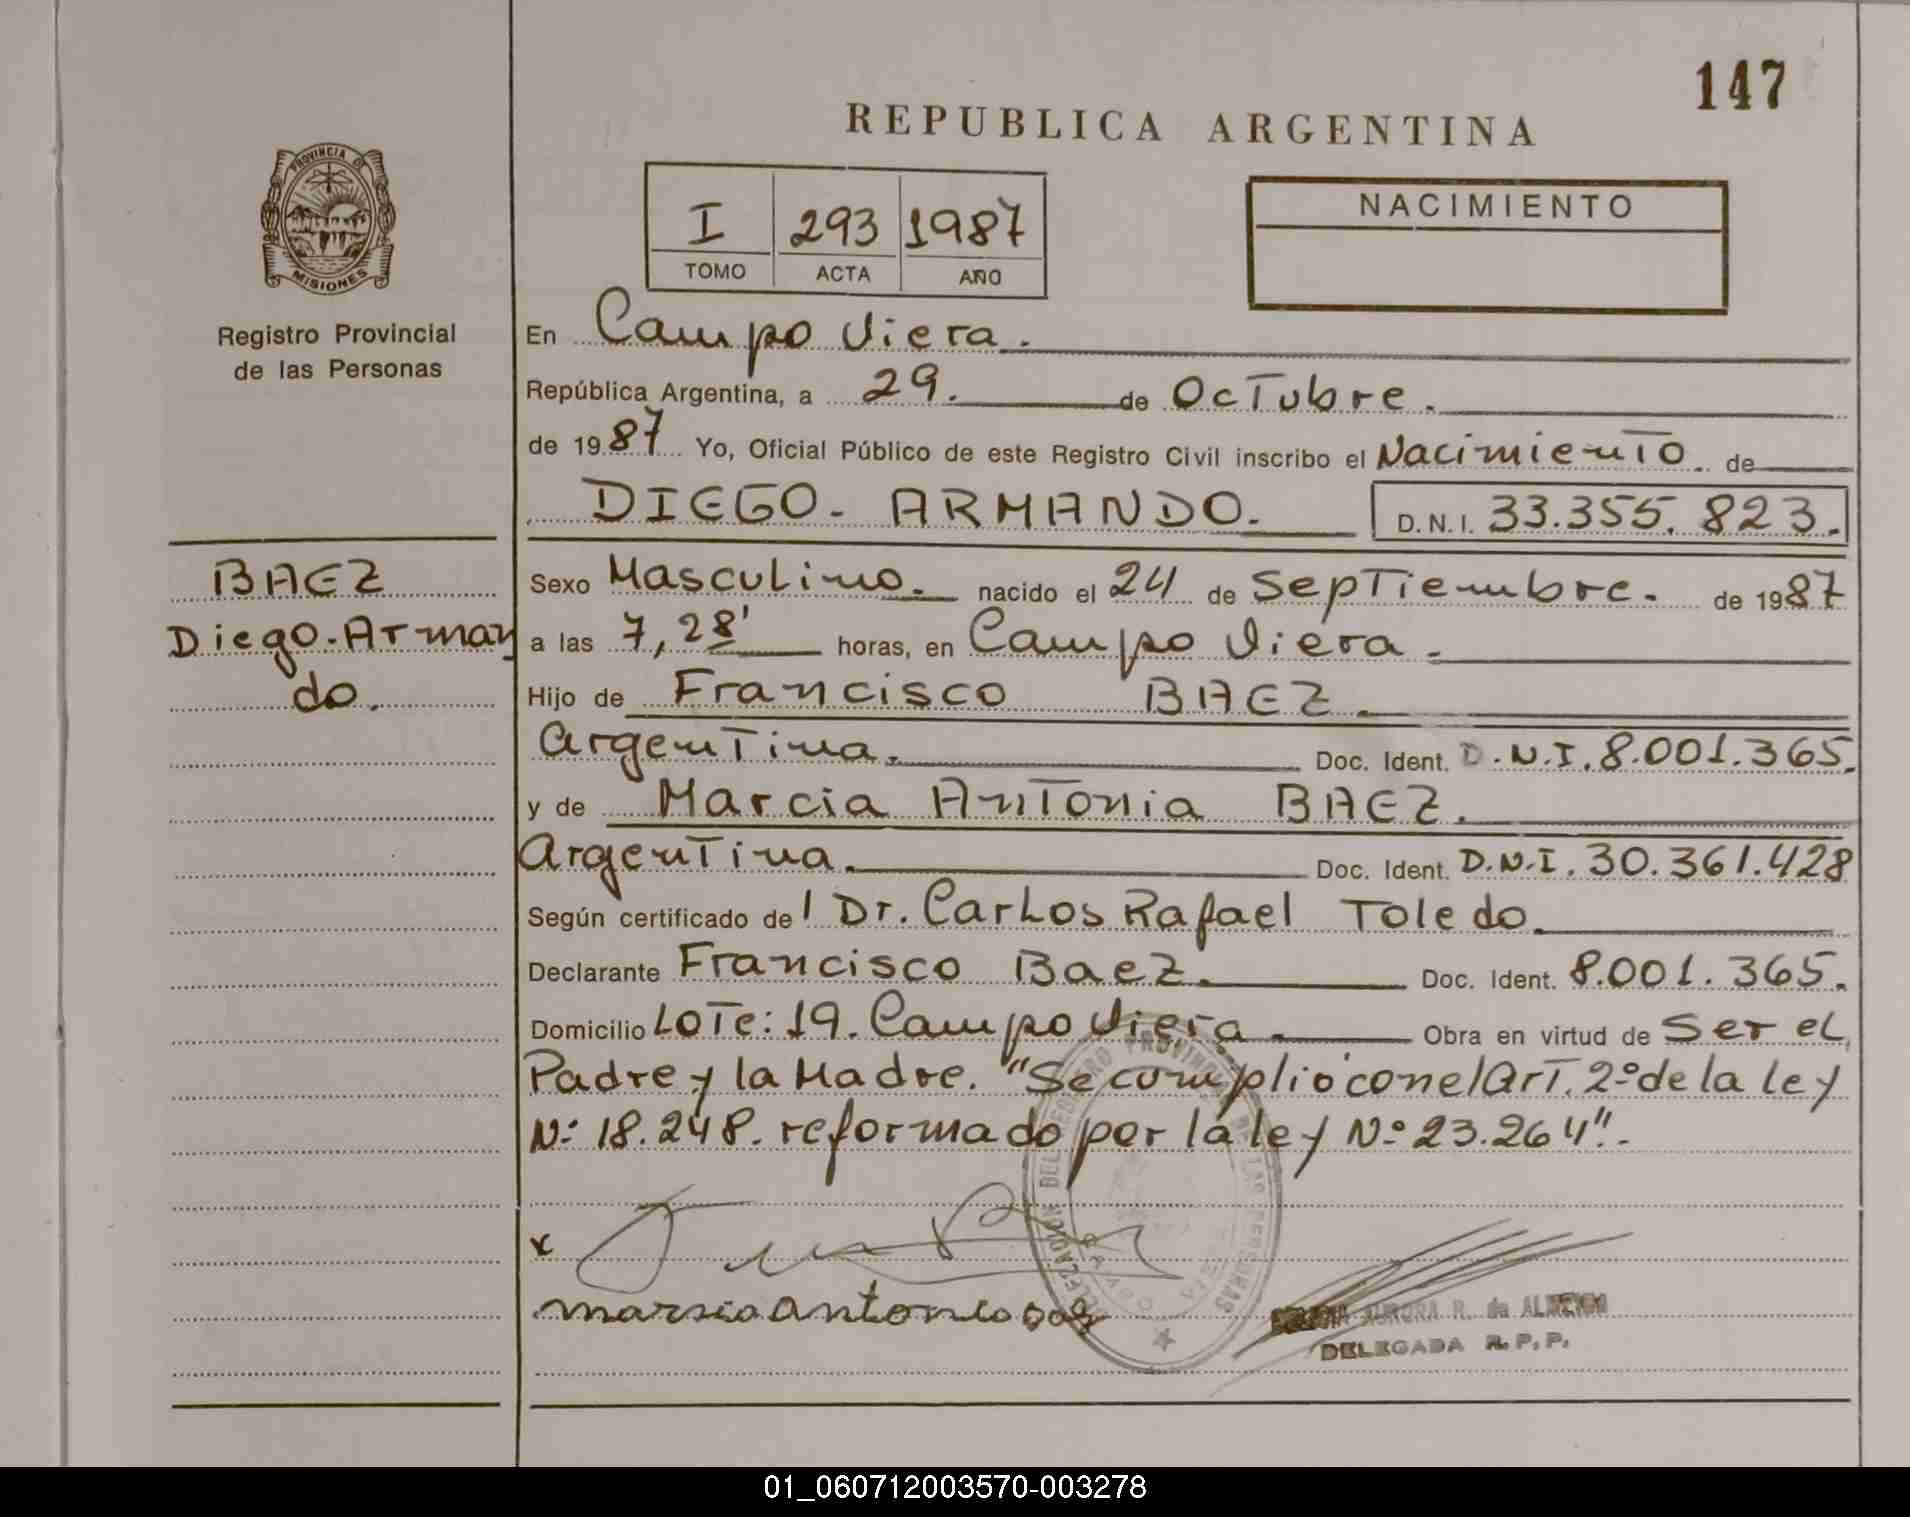 147
REPUBLICA ARGENTINA
PROVINCIA DE
MISIONES
Registro Provincial
de las Personas
I 293 1987
TOMO ACTA AÑO
NACIMIENTO
En Campo Viera.
República Argentina, a 29. de Octubre.
de 1987 Yo, Oficial Público de este Registro Civil inscribo el Nacimiento de
DIEGO- ARMANDO. D.N.I. 33.355.823.
BAEZ
Diego-Arman
do.
Sexo Masculino. nacido el 24 de Septiembre. de 1987
a las 7,28' horas, en Campo Viera.
Hijo de Francisco BAEZ.
Argentina. Doc. Ident. D.N.I. 8.001.365.
y de Marcia Antonia BAEZ.
Argentina. Doc. Ident. D.N.I. 30.361.428
Según certificado de l Dr. Carlos Rafael Toledo.
Declarante Francisco Baez. Doc. Ident. 8.001.365.
Domicilio Lote: 19. Campo Viera. Obra en virtud de Ser el
Padre y la Madre. "Se cumplió con el Art. 2º de la ley
Nº 18.248. reformado por la ley Nº 23.264".-
x
DELEGACION DEL REGISTRO PROVINCIAL DE LAS PERSONAS
AURORA R. de
DELEGADA R.P.P.
01_060712003570-003278